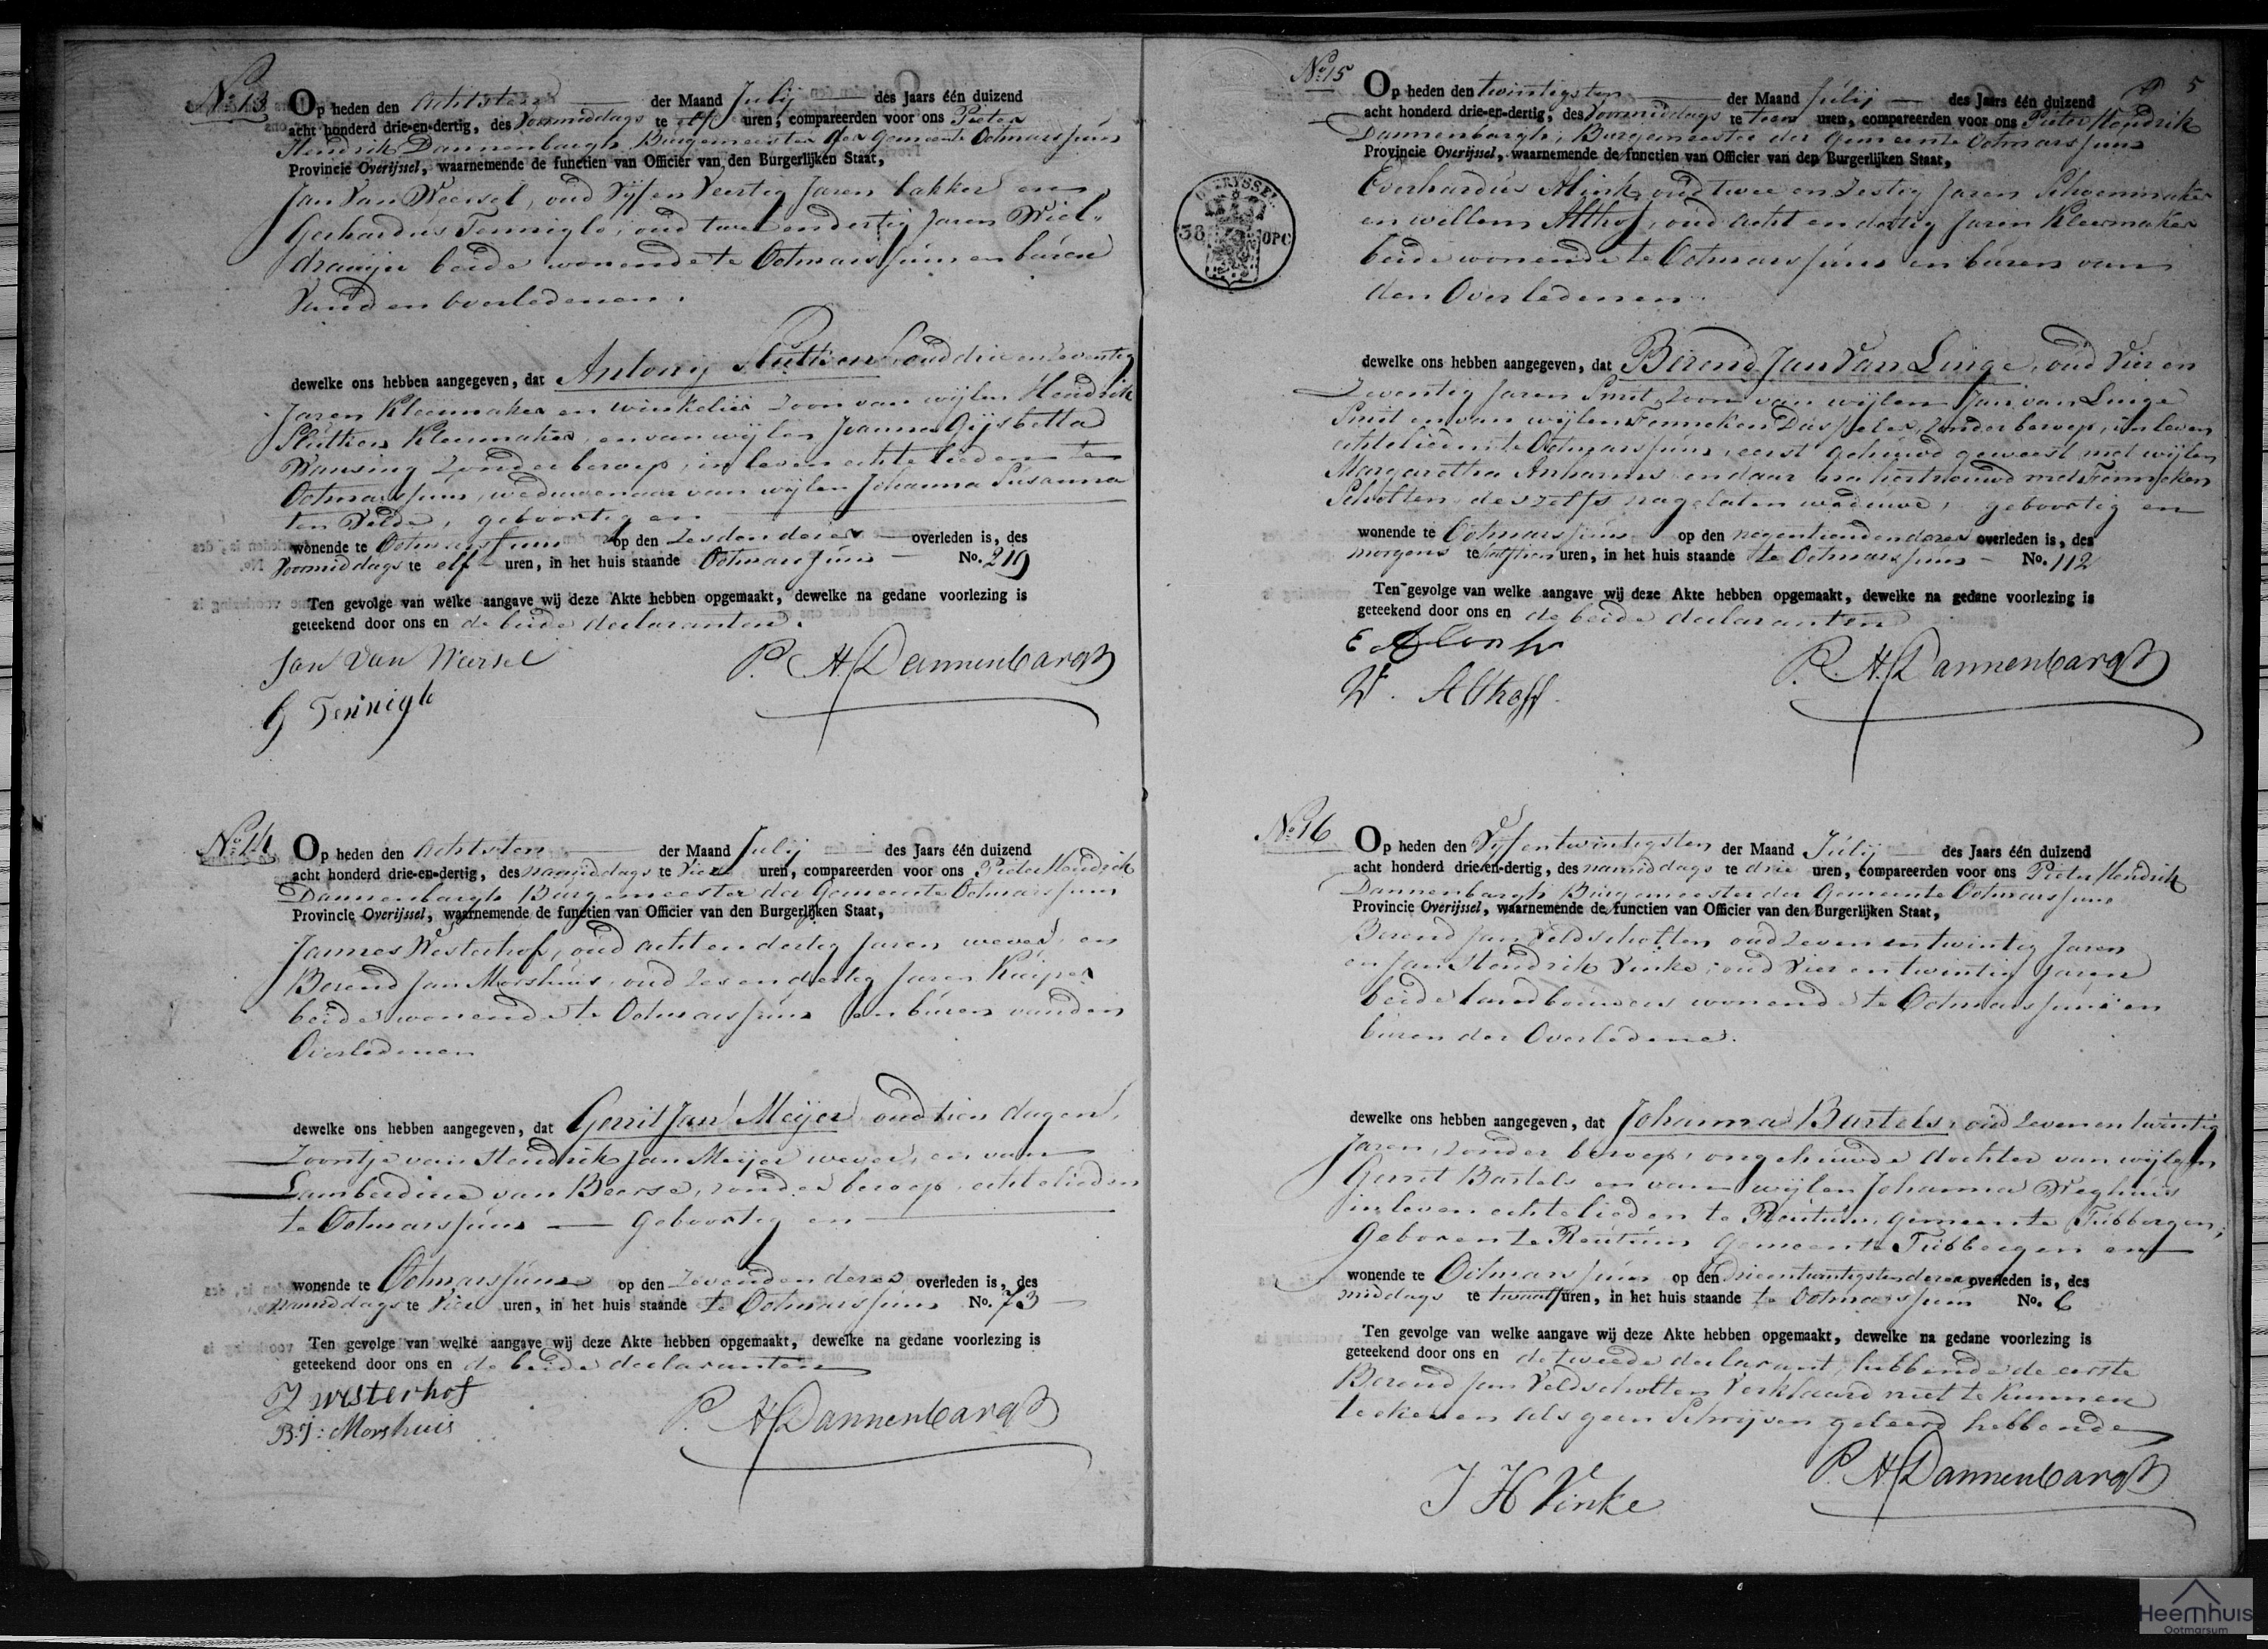 No 13
Op heden den Achtsten der Maand Julij des Jaars één duizend
acht honderd drie-en-dertig, des Voormiddags te elf uren, compareerden voor ons Pieter
Hendrik Dannenbargh Burgemeester der Gemeente Ootmarssum
Provincie Overijssel, waarnemende de functien van Officier van den Burgerlijken Staat,
Jan Van Weersel, oud Vyf en Veertig Jaren bakker en
Gerhardus Tenniglo, oud twee en dertig Jaren Wiel-
draaijer beide wonende te Ootmarssum en buren
Van den overledenen.
dewelke ons hebben aangegeven, dat Antony Sluttien oud drie en zeventig
Jaren Kleermaker en winkelier Zoon van wijlen Hendrik
Sluttien Kleermaker, en van wijlen Joanna Gijsbetta
Wansing zonder beroep, in leven echtelieden te
Ootmarssum, weduwenaar van wijlen Johanna Susanna
ten Velde, geboortig en
wonende te Ootmarssum op den zesden dezer overleden is, des
Voormiddags te elf uren, in het huis staande Ootmarssum No. 219
Ten gevolge van welke aangave wij deze Akte hebben opgemaakt, dewelke na gedane voorlezing is
geteekend door ons en de beide declaranten.
Jan Van Weersel
P. H. Dannenbargh
G Tenniglo
No 14
Op heden den Achtsten der Maand Julij des Jaars één duizend
acht honderd drie-en-dertig, des namiddags te Vier uren, compareerden voor ons Pieter Hendrik
Dannenbargh Burgemeester der Gemeente Ootmarssum
Provincie Overijssel, waarnemende de functien van Officier van den Burgerlijken Staat,
Jannes Westerhof, oud acht en dertig Jaren wever, en
Berend Jan Morshuis, oud zes en dertig Jaren Kuiper
beide wonende te Ootmarssum en buren van den
Overledenen
dewelke ons hebben aangegeven, dat Gerrit Jan Meijer oud tien dagen,
Zoontje van Hendrik Jan Meijer wever, en van
Lamberdine van Beerse, zonder beroep echtelieden
te Ootmarssum Geboortig en
wonende te Ootmarssum op den Zevenden dezer overleden is, des
namiddags te Vier uren, in het huis staande te Ootmarssum No. 73
Ten gevolge van welke aangave wij deze Akte hebben opgemaakt, dewelke na gedane voorlezing is
geteekend door ons en de beide declaranten
J westerhof
P. H. Dannenbargh
B:J: Morshuis
5
No 15
Op heden den twintigsten der Maand Julij des Jaars één duizend
acht honderd drie-en-dertig, des Voormiddags te tien uren, compareerden voor ons Pieter Hendrik
Dannenbargh, Burgemeester der Gemeente Ootmarssum
Provincie Overijssel, waarnemende de functien van Officier van den Burgerlijken Staat,
Everhardus Alink, oud twee en zestig Jaren Schoenmaker
en willem Althof, oud acht en dertig Jaren Kleermaker
beide wonende te Ootmarssum en buren van
den Overledenen.
OVERYSSEL
38 OPC
dewelke ons hebben aangegeven, dat Berend Jan Van Linge, oud Vier en
Zeventig Jaren Smit, Zoon van wijlen Jan van Linge
Smit en van wijlen Fenneken zonder beroep, in leven
echtelieden te Ootmarssum, eerst gehuwd geweest met wijlen
Margaretha en daar na hertrouwd met Fenneken
Scholten deszelfs nagelaten weduwe, geboortig en
wonende te Ootmarssum op den negentienden dezer overleden is, des
morgens te half tien uren, in het huis staande te Ootmarssum No. 112
Ten gevolge van welke aangave wij deze Akte hebben opgemaakt, dewelke na gedane voorlezing is
geteekend door ons en de beide declaranten
E
W. Althoff
P. H. Dannenbargh
No 16
Op heden den Vyf en twintigsten der Maand Julij des Jaars één duizend
acht honderd drie-en-dertig, des namiddags te drie uren, compareerden voor ons Pieter Hendrik
Dannenbargh Burgemeester der Gemeente Ootmarssum
Provincie Overijssel, waarnemende de functien van Officier van den Burgerlijken Staat,
Berend Jan Veldscholten oud zeven en twintig Jaren
en Jan Hendrik Vinke, oud Vier en twintig Jaren
beide landbouwers wonende te Ootmarssum en
buren der Overledene.
dewelke ons hebben aangegeven, dat Johanna Bartels, oud zeven en twintig
Jaren, zonder beroep, ongehuwde dochter van wijlen
Gerrit Bartels en van wijlen Johanna Weghuis
in leven echtelieden te Reutum, gemeente Tubbergen,
Geboren te Reutum Gemeente Tubbergen en
wonende te Ootmarssum op den drieentwintigsten dezer overleden is, des
middags te twaalf uren, in het huis staande te Ootmarssum No. 6
Ten gevolge van welke aangave wij deze Akte hebben opgemaakt, dewelke na gedane voorlezing is
geteekend door ons en de tweede declarant, hebbende de eerste
Berend Jan Veldscholten Verklaard niet te kunnen
teekenen als geen Schrijven geleerd hebbende
P. H. Dannenbargh
J H Vinke
Heemhuis
Ootmarsum